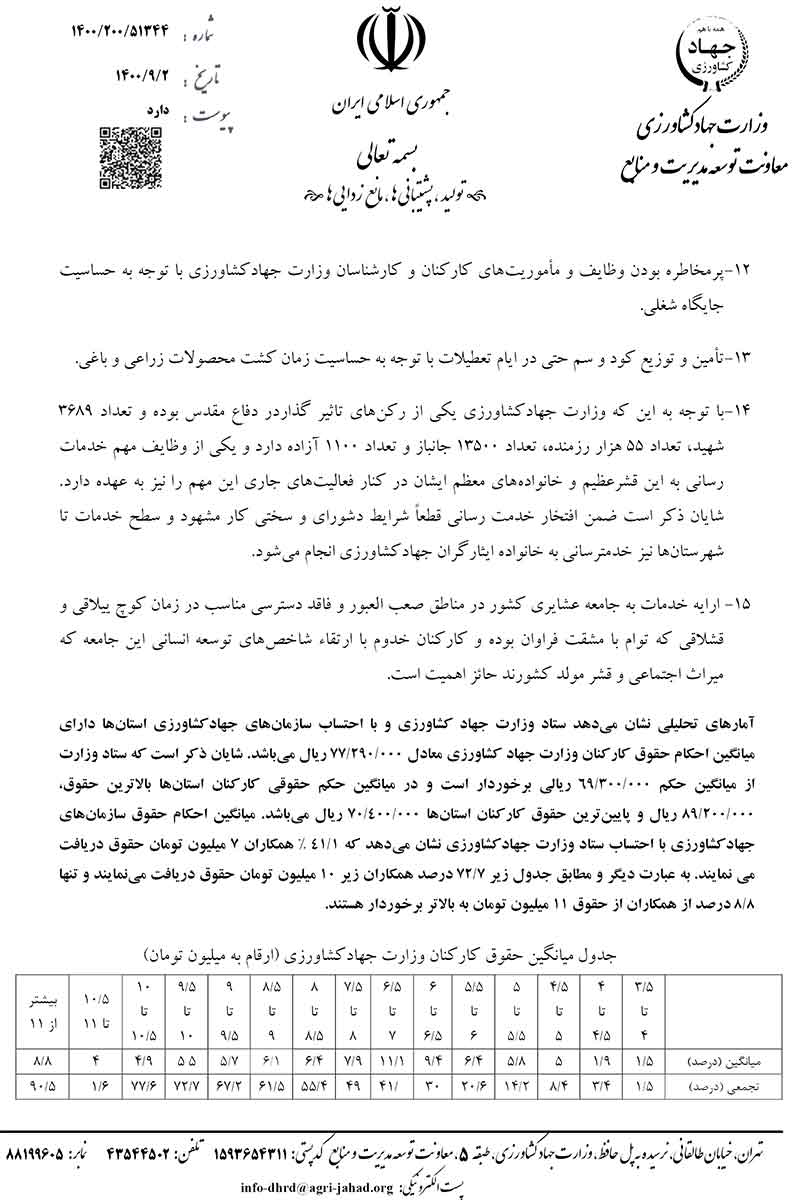 همه با هم
جهاد
کشاورزی
وزارت جهاد کشاورزی
معاونت توسعه مدیریت و منابع
جمهوری اسلامی ایران
بسمه تعالی
تولید، پشتیبانی‌ها، مانع زدایی‌ها
شماره : ۱۴۰۰/۲۰۰/۵۱۳۴۴
تاریخ : ۱۴۰۰/۹/۲
پیوست : دارد
۱۲-پرمخاطره بودن وظایف و مأموریت‌های کارکنان و کارشناسان وزارت جهادکشاورزی با توجه به حساسیت
جایگاه شغلی.
۱۳-تأمین و توزیع کود و سم حتی در ایام تعطیلات با توجه به حساسیت زمان کشت محصولات زراعی و باغی.
۱۴-با توجه به این که وزارت جهادکشاورزی یکی از رکن‌های تاثیر گذاردر دفاع مقدس بوده و تعداد ۳۶۸۹
شهید، تعداد ۵۵ هزار رزمنده، تعداد ۱۳۵۰۰ جانباز و تعداد ۱۱۰۰ آزاده دارد و یکی از وظایف مهم خدمات
رسانی به این قشرعظیم و خانواده‌های معظم ایشان در کنار فعالیت‌های جاری این مهم را نیز به عهده دارد.
شایان ذکر است ضمن افتخار خدمت رسانی قطعاً شرایط دشورای و سختی کار مشهود و سطح خدمات تا
شهرستان‌ها نیز خدمترسانی به خانواده ایثارگران جهادکشاورزی انجام می‌شود.
۱۵- ارایه خدمات به جامعه عشایری کشور در مناطق صعب العبور و فاقد دسترسی مناسب در زمان کوچ ییلاقی و
قشلاقی که توام با مشقت فراوان بوده و کارکنان خدوم با ارتقاء شاخص‌های توسعه انسانی این جامعه که
میراث اجتماعی و قشر مولد کشورند حائز اهمیت است.
آمارهای تحلیلی نشان می‌دهد ستاد وزارت جهاد کشاورزی و با احتساب سازمان‌های جهادکشاورزی استان‌ها دارای
میانگین احکام حقوق کارکنان وزارت جهاد کشاورزی معادل ۷۷/۲۹۰/۰۰۰ ریال می‌باشد. شایان ذکر است که ستاد وزارت
از میانگین حکم ۶۹/۳۰۰/۰۰۰ ریالی برخوردار است و در میانگین حکم حقوقی کارکنان استان‌ها بالاترین حقوق،
۸۹/۲۰۰/۰۰۰ ریال و پایین‌ترین حقوق کارکنان استان‌ها ۷۰/٤۰۰/۰۰۰ ریال می‌باشد. میانگین احکام حقوق سازمان‌های
جهادکشاورزی با احتساب ستاد وزارت جهادکشاورزی نشان می‌دهد که ٤۱/۱ ٪ همکاران ۷ میلیون تومان حقوق دریافت
می نمایند. به عبارت دیگر و مطابق جدول زیر ۷۲/۷ درصد همکاران زیر ۱۰ میلیون تومان حقوق دریافت می‌نمایند و تنها
۸/۸ درصد از همکاران از حقوق ۱۱ میلیون تومان به بالاتر برخوردار هستند.
جدول میانگین حقوق کارکنان وزارت جهادکشاورزی (ارقام به میلیون تومان)
۳/۵ تا ۴ | ۴ تا ۴/۵ | ۴/۵ تا ۵ | ۵ تا ۵/۵ | ۵/۵ تا ۶ | ۶ تا ۶/۵ | ۶/۵ تا ۷ | ۷/۵ تا ۸ | ۸ تا ۸/۵ | ۸/۵ تا ۹ | ۹ تا ۹/۵ | ۹/۵ تا ۱۰ | ۱۰ تا ۱۰/۵ | ۱۰/۵ تا ۱۱ | بیشتر از ۱۱
میانگین (درصد) | ۱/۵ | ۱/۹ | ۵ | ۵/۸ | ۶/۴ | ۹/۴ | ۱۱/۱ | ۷/۹ | ۶/۴ | ۶/۱ | ۵/۷ | ۵ ۵ | ۴/۹ | ۴ | ۸/۸
تجمعی (درصد) | ۱/۵ | ۳/۴ | ۸/۴ | ۱۴/۲ | ۲۰/۶ | ۳۰ | ۴۱/ | ۴۹ | ۵۵/۴ | ۶۱/۵ | ۶۷/۲ | ۷۲/۷ | ۷۷/۶ | ۱/۶ | ۹۰/۵
تهران، خیابان طالقانی، نرسیده به پل حافظ، وزارت جهاد کشاورزی، طبقه ۵، معاونت توسعه مدیریت و منابع کد پستی: ۱۵۹۳۶۵۴۳۱۱ تلفن: ۴۳۵۴۴۵۰۲ نمابر: ۸۸۱۹۹۶۰۵
پست الکترونیکی: info-dhrd@agri-jahad.org